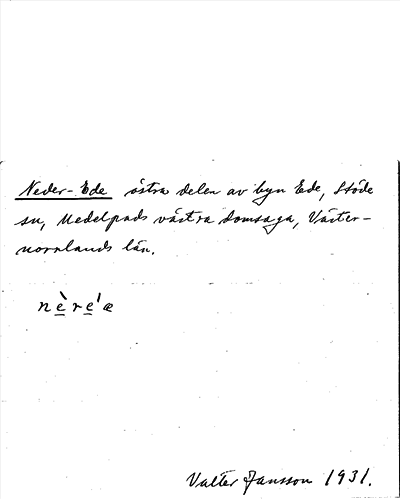 Neder-Ede östra delen av byn Ede, Stöde
sn, Medelpads västra domsaga, Väster-
norrlands län.
nè̱re̱ˈæ
Valter Jansson 1931.